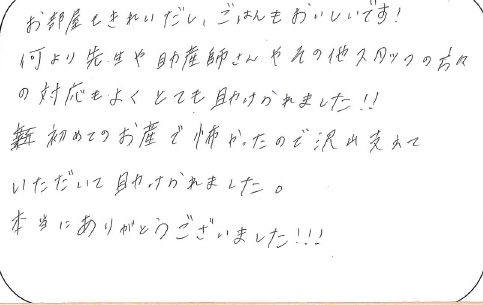 お部屋もきれいだし、ごはんもおいしいです!
何より先生や助産師さんやその他スタッフの方々
の対応もよくとても助けられました!!
初めてのお産で怖かったので沢山支えて
いただいて助けられました。
本当にありがとうございました!!!